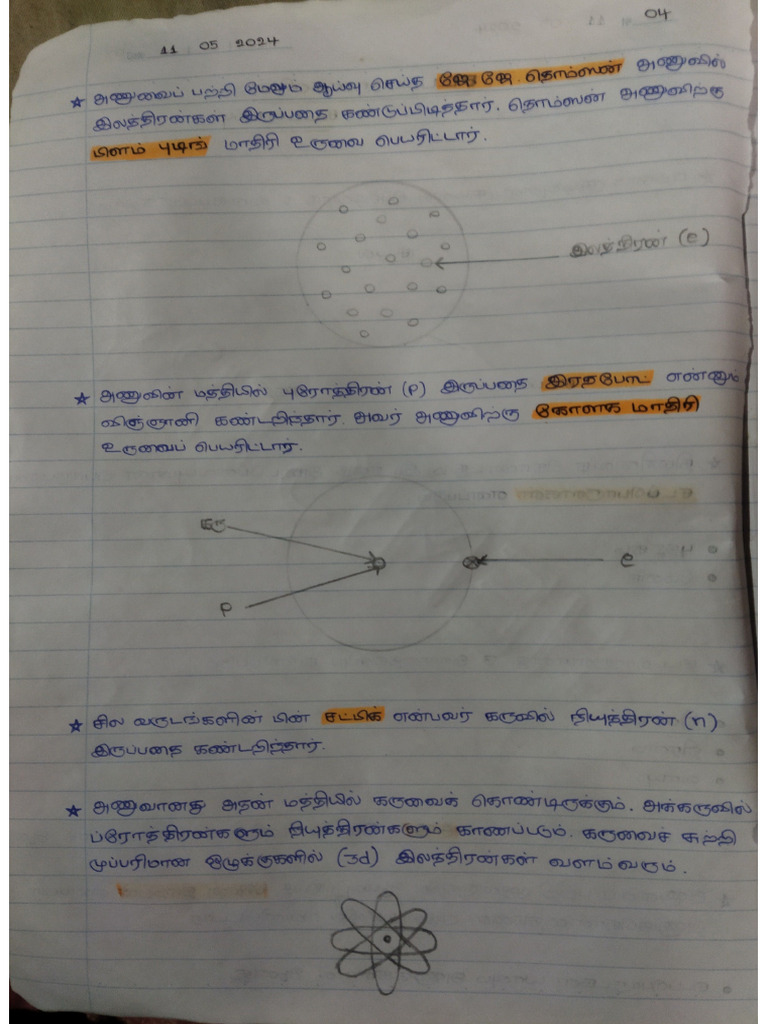 04
11 05 2024
★ அணுவைப் பற்றி மேலும் ஆய்வு செய்த ஜே ஜே தொம்ஸன் அணுவில்
இலத்திரன்கள் இருப்பதை கண்டுபிடித்தார். தொம்ஸன் அணுவிற்கு
பிளம் புடிங் மாதிரி உருவை பெயரிட்டார்.
இலத்திரன் (e)
★ அணுவின் மத்தியில் புரோத்திரன் (P) இருப்பதை இரதபோட் என்னும்
விஞ்ஞானி கண்டறிந்தார். அவர் அணுவிற்கு கோளக மாதிரி
உருவைப் பெயரிட்டார்.
கரு
e
P
★ சில வருடங்களின் பின் சட்மிக் என்பவர் கருவில் நியுத்திரன் (n)
இருப்பதை கண்டறிந்தார்.
★ அணுவானது அதன் மத்தியில் கருவைக் கொண்டிருக்கும். அக்கருவில்
ப்ரோத்திரன்களும் நியுத்திரன்களும் காணப்படும். கருவைச் சுற்றி
முப்பரிமான ஒழுக்குகளில் (3d) இலத்திரன்கள் வளம்வரும்.